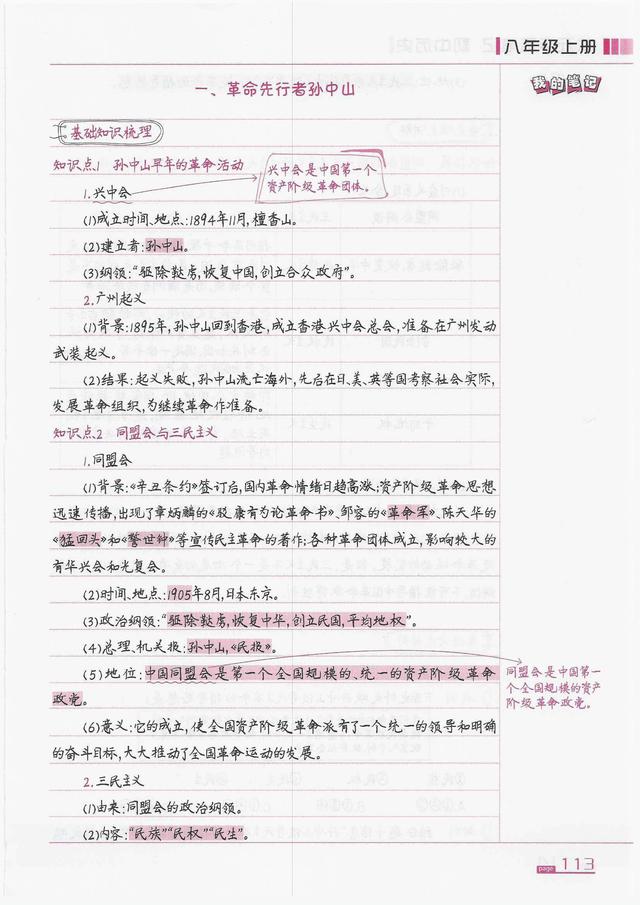 八年级上册
我的笔记
一、革命先行者孙中山
基础知识梳理
知识点1 孙中山早年的革命活动
兴中会是中国第一个
资产阶级革命团体。
1.兴中会
(1)成立时间、地点:1894年11月,檀香山。
(2)建立者:孙中山。
(3)纲领:“驱除鞑虏,恢复中国,创立合众政府”。
2.广州起义
(1)背景:1895年,孙中山回到香港,成立香港兴中会总会,准备在广州发动
武装起义。
(2)结果:起义失败,孙中山流亡海外,先后在日、美、英等国考察社会实际,
发展革命组织,为继续革命作准备。
知识点2 同盟会与三民主义
1.同盟会
(1)背景:《辛丑条约》签订后,国内革命情绪日趋高涨;资产阶级革命思想
迅速传播,出现了章炳麟的《驳康有为论革命书》、邹容的《革命军》、陈天华的
《猛回头》和《警世钟》等宣传民主革命的著作;各种革命团体成立,影响较大的
有华兴会和光复会。
(2)时间、地点:1905年8月,日本东京。
(3)政治纲领:“驱除鞑虏,恢复中华,创立民国,平均地权”。
(4)总理、机关报:孙中山,《民报》。
(5)地位:中国同盟会是第一个全国规模的、统一的资产阶级革命
政党。
同盟会是中国第一
个全国规模的资产
阶级革命政党。
(6)意义:它的成立,使全国资产阶级革命派有了一个统一的领导和明确
的奋斗目标,大大推动了全国革命运动的发展。
2.三民主义
(1)由来:同盟会的政治纲领。
(2)内容:“民族”“民权”“民生”。
page 113